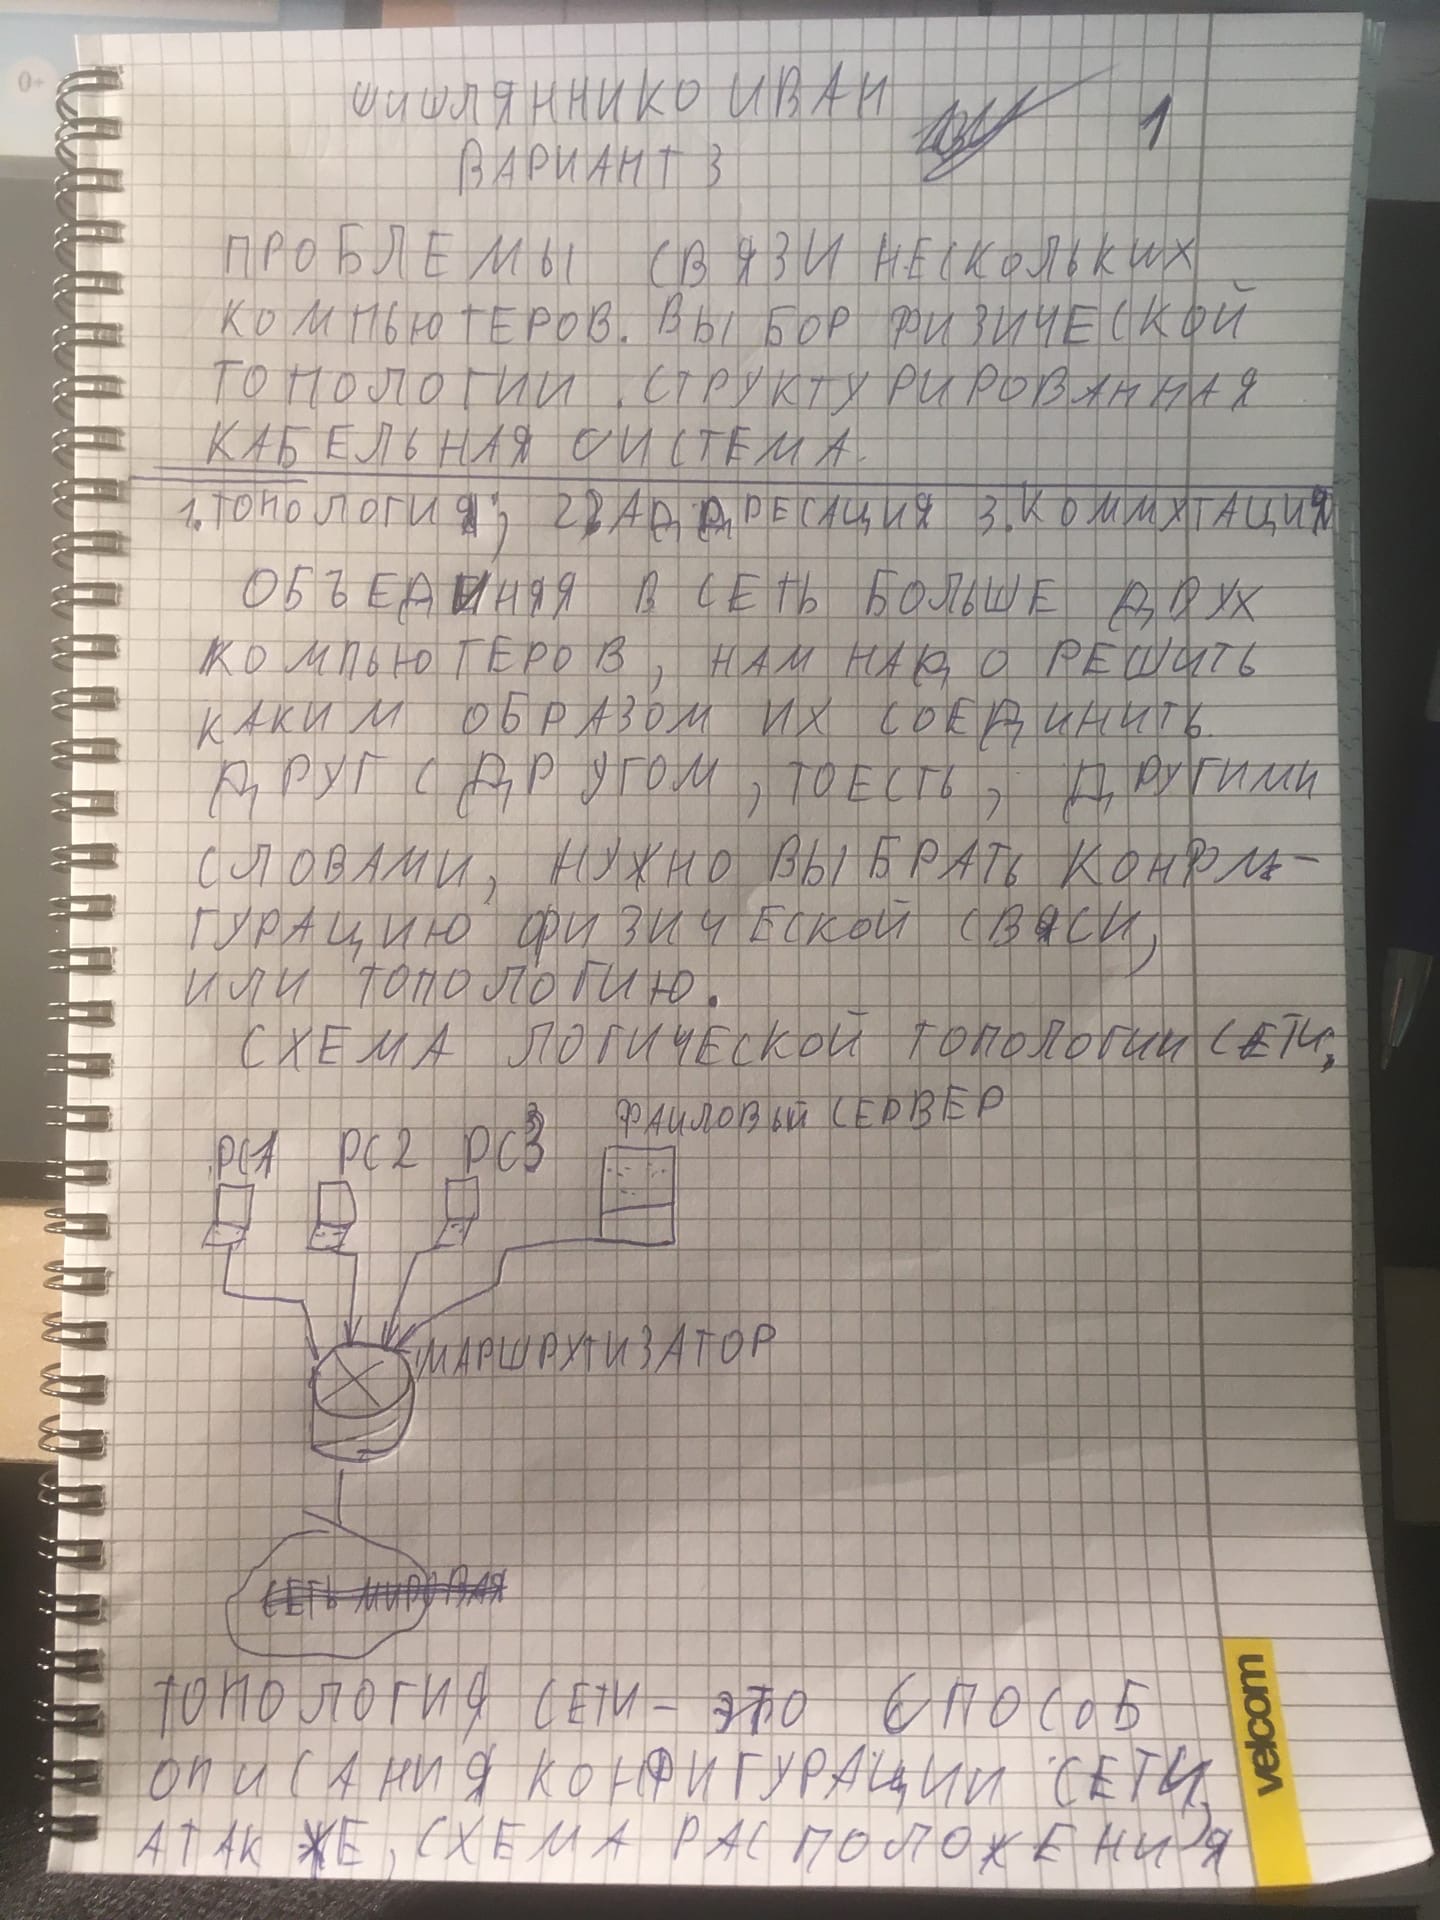 0+
ШИШЛЯННИКО ИВАН
1
ВАРИАНТ 3
ПРОБЛЕМЫ СВЯЗИ НЕСКОЛЬКИХ
КОМПЬЮТЕРОВ. ВЫБОР ФИЗИЧЕСКОЙ
ТОПОЛОГИИ. СТРУКТУРИРОВАННАЯ
КАБЕЛЬНАЯ СИСТЕМА.
1. ТОПОЛОГИЯ; 2. АДДРЕСАЦИЯ 3. КОММУТАЦИЯ
ОБЪЕДИНЯЯ В СЕТЬ БОЛЬШЕ ДВУХ
КОМПЬЮТЕРОВ, НАМ НАДО РЕШИТЬ
КАКИМ ОБРАЗОМ ИХ СОЕДИНИТЬ
ДРУГ С ДРУГОМ, ТОЕСТЬ, ДРУГИМИ
СЛОВАМИ, НУЖНО ВЫБРАТЬ КОНФИ-
ГУРАЦИЮ ФИЗИЧЕСКОЙ СВЯСИ,
ИЛИ ТОПОЛОГИЮ.
СХЕМА ЛОГИЧЕСКОЙ ТОПОЛОГИИ СЕТИ,
ФАИЛОВЫЙ СЕРВЕР
PC1 PC2 PC3
МАРШРУТИЗАТОР
СЕТЬ МИРОВАЯ
ТОПОЛОГИЯ СЕТИ - ЭТО СПОСОБ
ОПИСАНИЯ КОНФИГУРАЦИИ СЕТИ,
АТАК ЖЕ, СХЕМА РАСПОЛОЖЕНИЯ
velcom